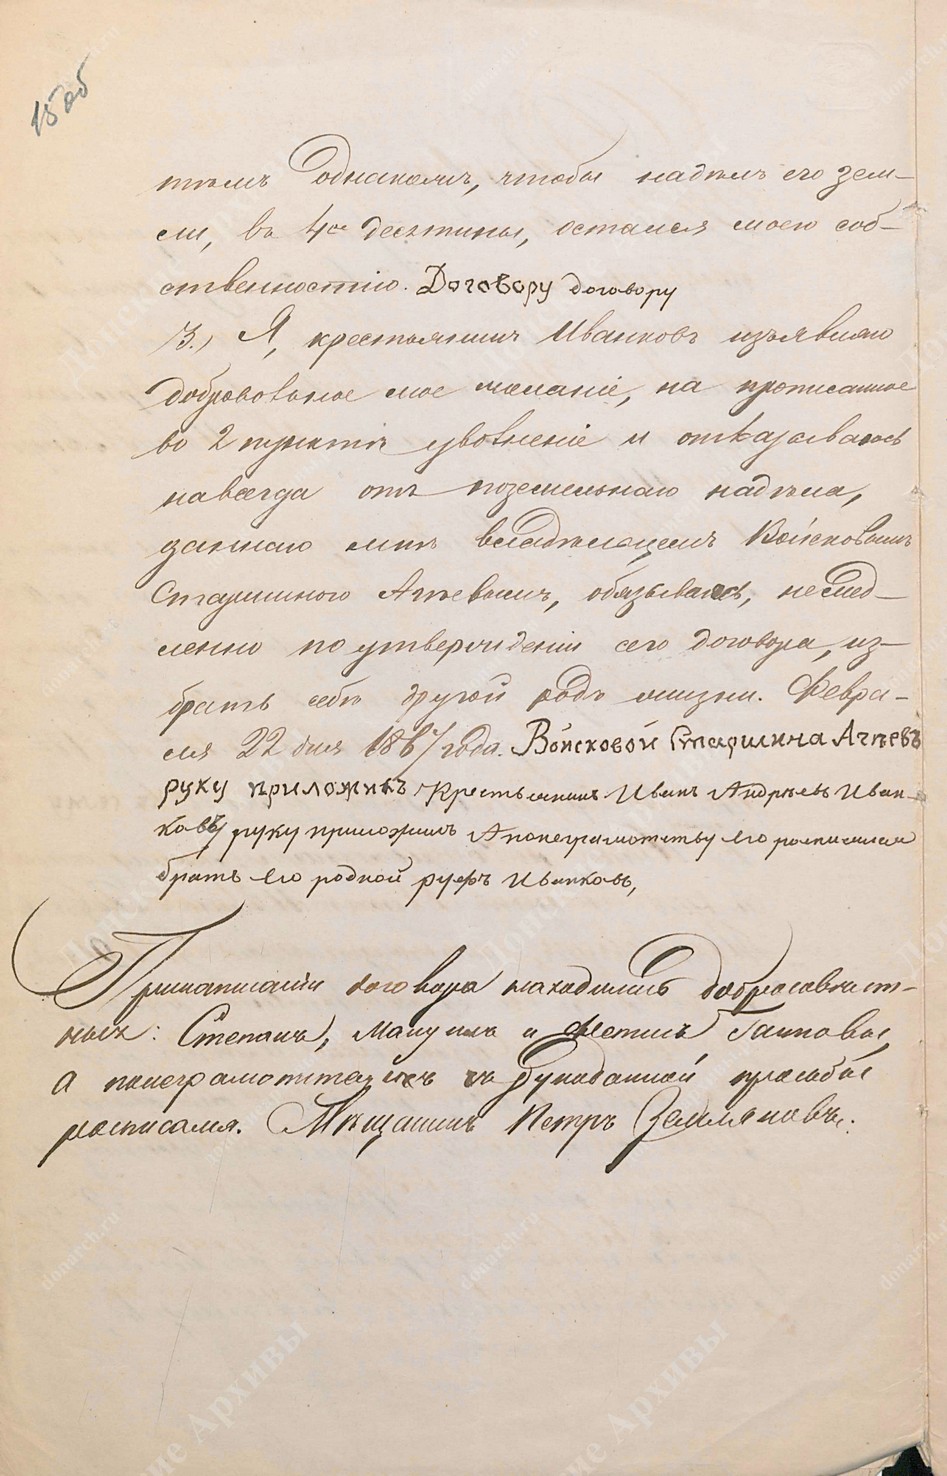 15 об
тѣмъ однакожъ, чтобы надѣлъ его зем-
ли, въ 4ре десятины, остался моею соб-
ственностію. Договору договору
3.) Я, крестьянинъ Иванковъ изъявляю
добровольное мое желаніе, на прописанное
во 2 пунктѣ увольненіе и отказываюсь
навсегда отъ поземельнаго надѣла,
даннаго мнѣ владѣльцемъ Войсковымъ
Старшиною Агѣевымъ, обязываясь, немед-
ленно по утвержденіи сего договора, из-
брать себѣ другой родъ жизни. Февра-
ля 22 дня 1867 года. Войсковой Старшина Агѣевъ
руку приложилъ Крестьянинъ Иванъ Андрѣевъ Иван-
ковъ руку приложилъ А понеграмотству его росписался
братъ его родной Иванковъ,
При написаніи договора находились добросовѣст-
ныхъ: Степанъ, Мануилъ и Фетисъ
а по неграмотству ихъ просьбѣ
росписался. Мѣщанинъ Петръ Земляновъ.